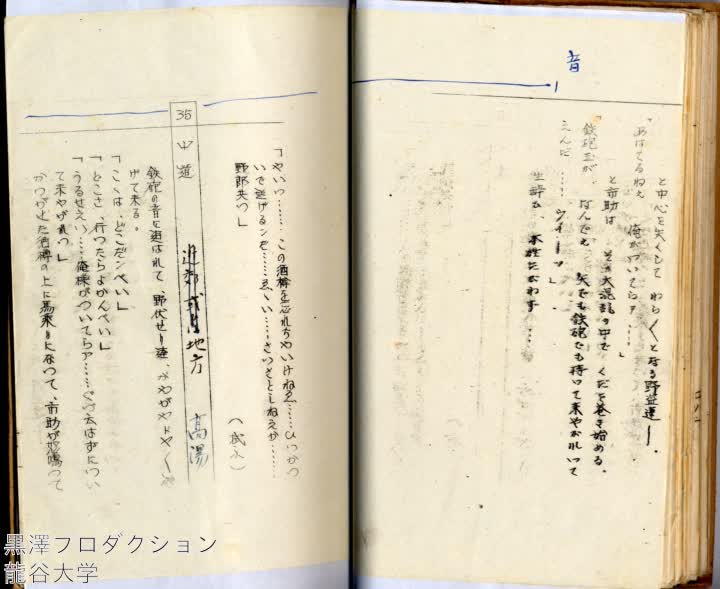 音
と中心を失くして わら〱となる野盗達――。
「あはてるねえ 俺がついてらァ……」
と市助は その大混乱の中で くだを巻き始める。
「鉄砲玉が、なんでえ 矢でも鉄砲でも持って来やがれって
えんだ …… ウイーッ」
生酔ひ、本性たがわず …
「やいっ……この酒樽を忘れちやいけねえ……ひっかつ
いで逃げるンだ……えゝい……さいさとしねえか……
野郎共っ」
35
中道
近郊或る地方
高湯
鉄砲の音に追はれて、野伏せり達、がやがやドヤ〱
げて来る。
「こゝは、どこだンべい」
「どこさ、行ったらよかんべい」
「うるせえい……俺様がついてらァ……ぐづ云はずについ
て来やがれっ」
かつがせた酒樽の上に馬乗りになって、市助が怒鳴って
黒澤プロダクション
龍谷大学